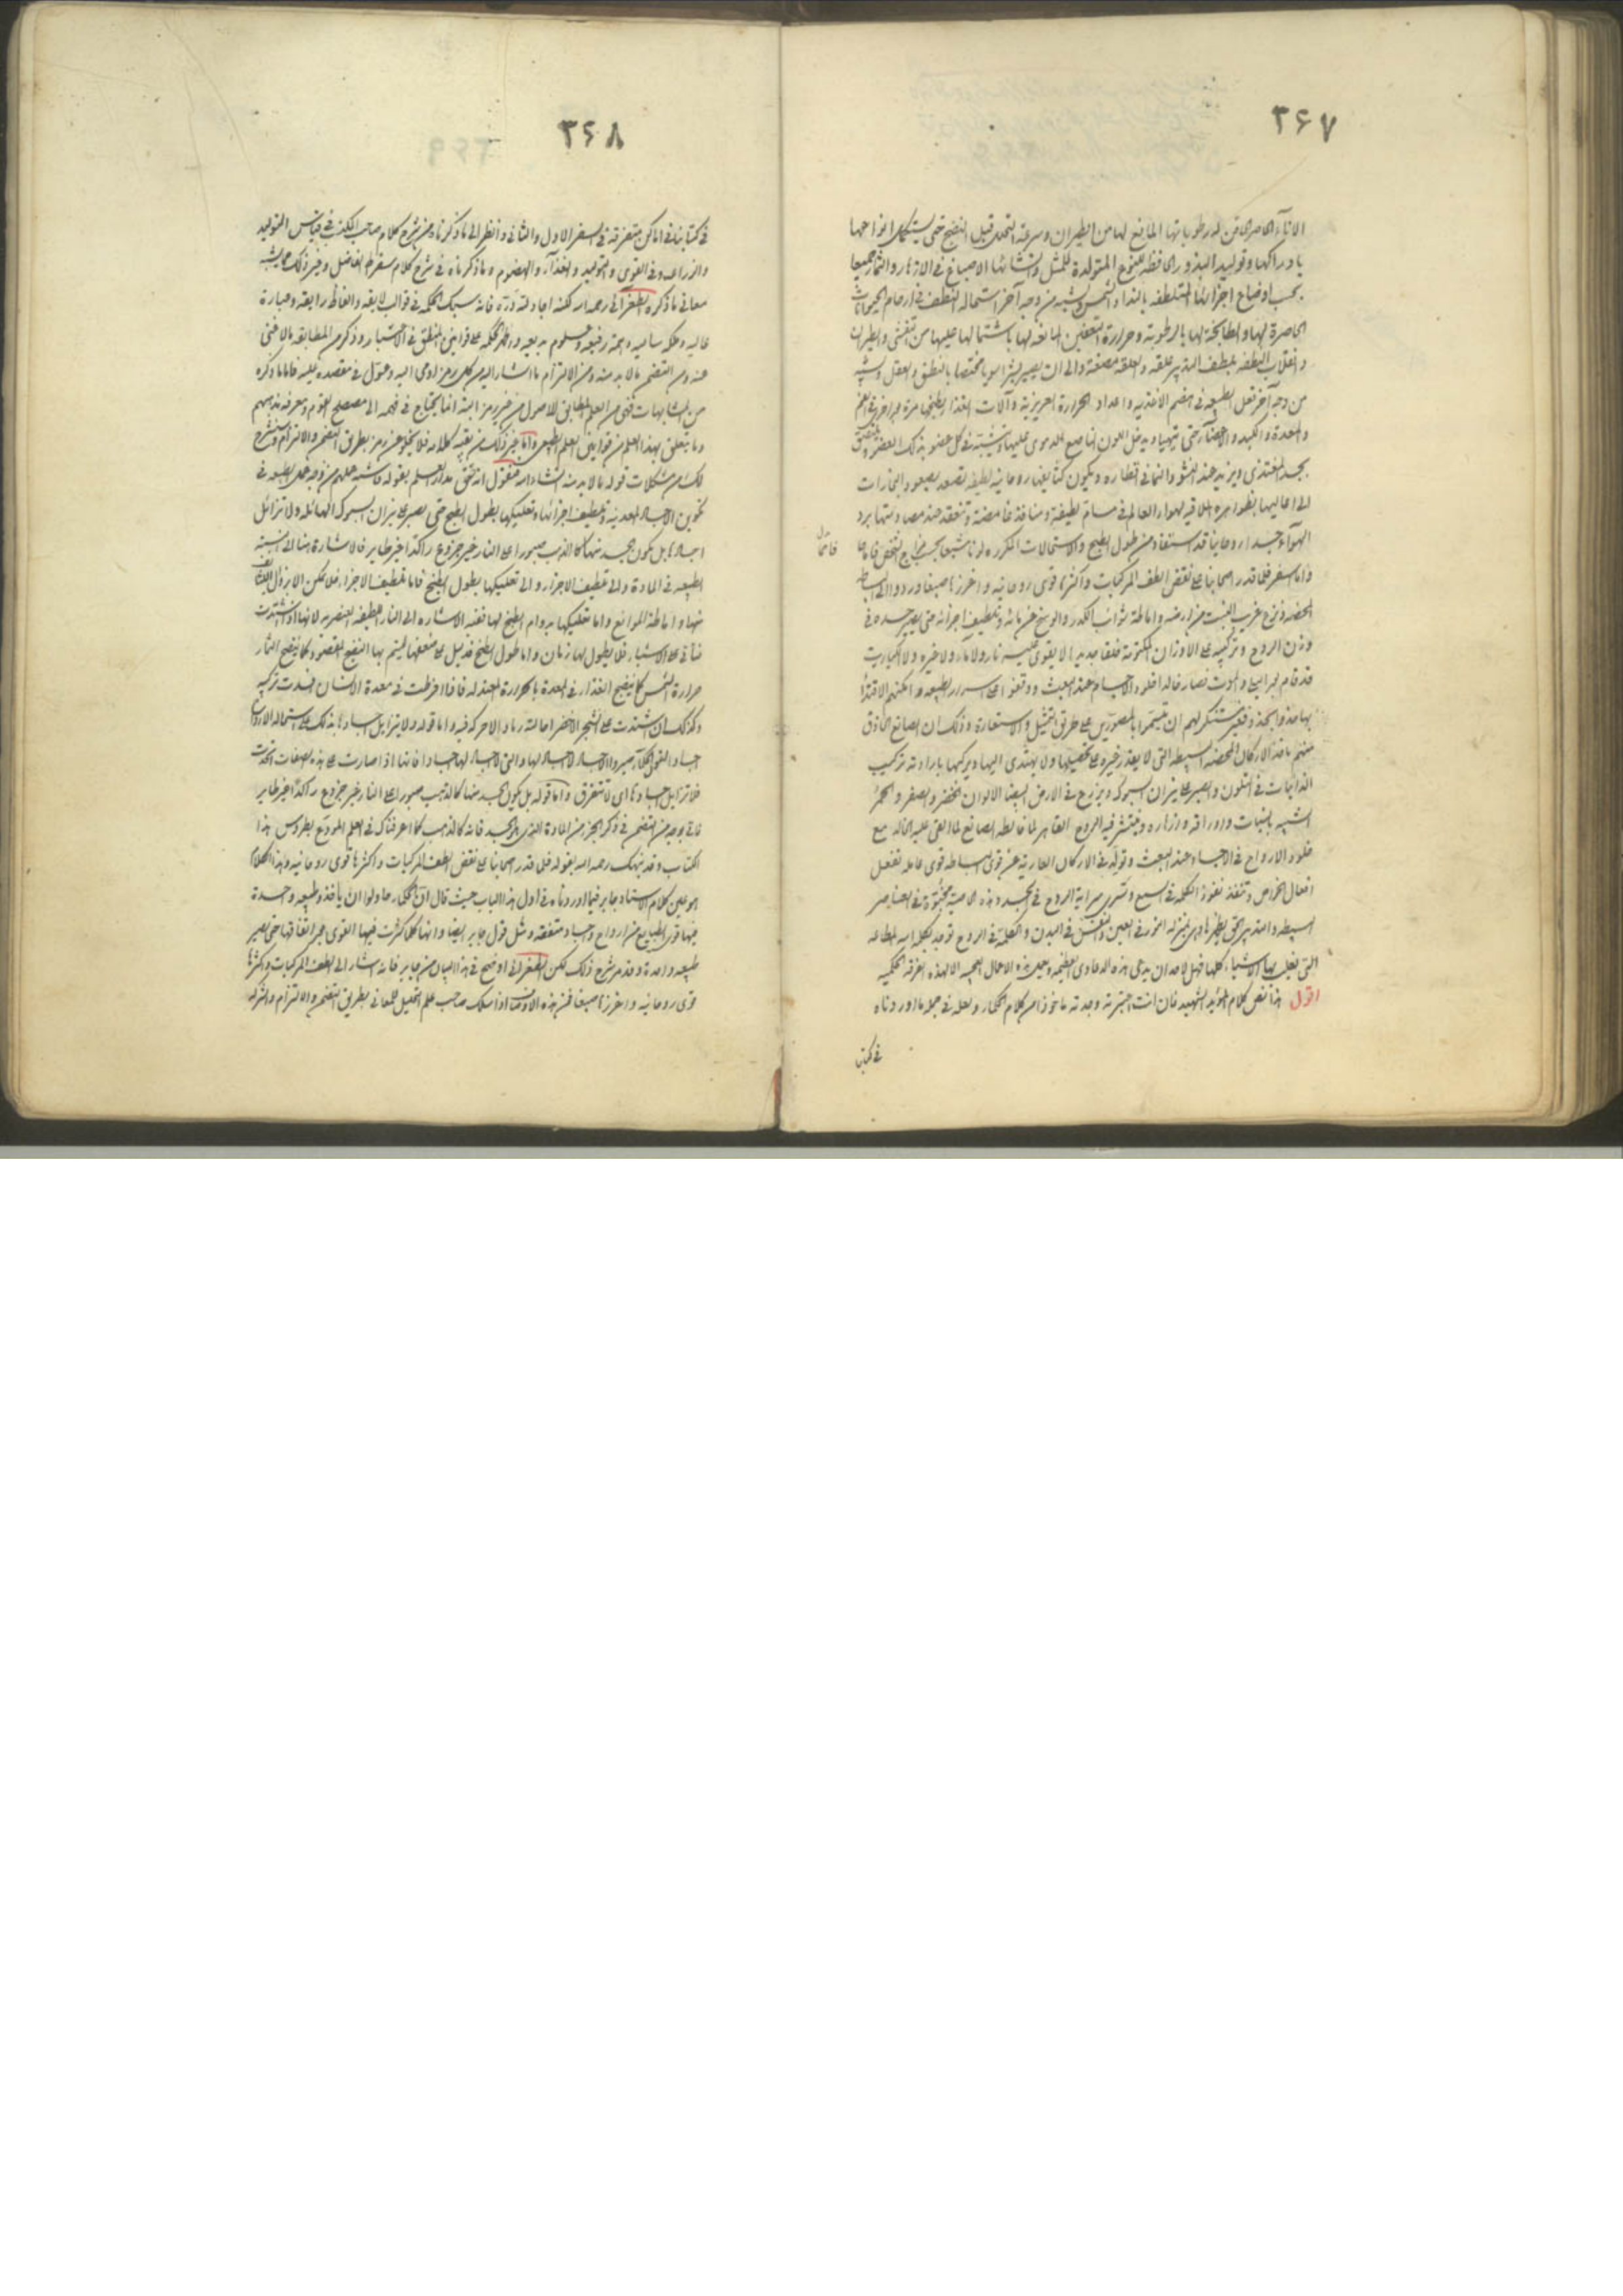 ٣۶٧
الاناء الحاصر الحاقن لرطوباتها المانع لها من الطيران وسرعة التحلل قبل النضج حتى يستكمل انواعها
بادراكها وتوليد البذور الحافظة للنوع المتولدة للمثل وانشائها الاصباغ في الازهار والثمار جميعا
بحسب اوضاع اجزائها المتلطفة بالنداوة والشمس ويشبه من وجه آخر استحالة النطف في ارحام الحيوانات
الحاصرة لها والطابخة لها بالرطوبة وحرارة التعفين المانعة لها باشتمالها عليها من التفشي والطيران
وانقلاب النطفة بلطف التدبير علقة والعلقة مضغة والى ان يصير بشرا سويا مختصا بالنطق والعقل ويشبه
من وجه آخر فعل الطبيعة في هضم الاغذية واعداد الحرارة الغريزية وآلات الغذا لطبخها مرة بعد اخرى في الفم
والمعدة والكبد والاعضاء حتى يتهيا ويدخل اللون الناصع الدموي عليها وتشبه في كل عضو بذلك العضو وتلتصق
بجسد المغتذي ويزيد عند النشو والنما في اقطاره ويكون كثايفها روحانية لطيفة تصعد بصعود البخارات
الى اعاليها بظواهره الملاقية لهواء العالم في مسام لطيفة ومنافذ غامضة وتنعقد عند مصادمتها برد
الهواء جسدا روحانيا قد استفاد من طول الطبخ والاستحالات المكررة لونا مشبعا بحسب مزاج الشخص
واما سفر فلما قدر اصحابنا على نقض الطف المركبات واكثرها قوى روحانية واغزرها صبغا وردوا الى البسائط
المحضة ونزع غريب النبت من ارضه واماطة شوائب الكدر والوسخ عن مائه وتلطيف اجزائه حتى يصير جسده في
وزن الروح وتركيبه على الاوزان المكتومة خلقا جديدا لا يقوى عليه نار ولا ماء ولا غيره ولا كباريت
قد قام بحر البحر والموت فصار خالدا خلود الاجسام عند البعث ووقفوا على اسرار الطبيعة وامكنهم الاقتدا
بها حذو الحذو فغير مستنكر لهم ان يتسموا بالمصورين على طريق التمثيل والاستعارة وذلك ان الصانع الحاذق
منهم ياخذ الاركان المحضة البسيطة التي لا يقدر غيره على تحصيلها ولا يهتدي اليها ويركبها بارادته تركيب
الذائبات في التلون والصبر على نيران السبوك ويزرع في الارض البيضا الالوان الخضر والصفر والحمر
اشبه بالنبات واوراقه وازهاره وينتشر فيه الروح القاهر لما خالطه الصانع لما القي عليه الخالد مع
خلود الارواح في الاجساد عند البعث وتولد في الاركان العارية عن قوى البساطة قوى فاعلة تفعل
افعال الخواص وتنفذ نفوذ الكلمة في السمع وتسري سراية الروح في الجسد وهذه الخاصية مخبوة في العناصر
البسيطة والتدبير الحق يظهرها وهي بمنزلة النور في العين والنفس في البدن والكلمة في الروح توجد بكلمة الله المطاعة
التي يقلب بها الاشياء كلها فهل لاحد ان يدعي هذه الدعاوي العظيمة ويعمل هذه الاعمال العجيبة الا لهذه الفرقة الحكمية
اقول هذا نص كلام المؤيد الشهيد فان انت اعتبرته وجدته ماخوذا من كلام الحكماء ولعله في جملة ما اوردناه
في كتابنا
٣۶٨
في كتابنا في اماكن متفرقة في السفر الاول والثاني وانظر الى ما ذكرناه من شرح كلام صاحب المكتسب في قياس التوليد
والزراعة وفي القوى والتوليد والغذاء والهضوم وما ذكرناه في شرح كلام سقراط الفاضل وغير ذلك مما يشبه
معاني ما ذكره الطغرائي رحمه الله لكنه اجاد لله دره فانه سبك الحكمة في قوالب لايقة والفاظ رايقة وعبارة
عالية وحكمة سامية وهمة رفيعة وعلوم بديعية واظهر الحكمة على قوانين المنطق في الاختيار وذكر من المطابقة ما لا غنى
عنه ومن التضمن ما لا بد منه ومن الالتزام ما اشار اليه من كل رمز اومى اليه وعول في مقصده عليه فاما ما ذكره
من المشابهات فهي من العلم المطابق للاصول من غير رمز البتة انما يحتاج في فهمه الى مصطلح القوم ومعرفة مذهبهم
وما يتعلق بهذا العلم من قوانين العلم الطبيعي واما غير ذلك من بقية كلامه فلا يخلو عن رمز بطريق التضمن والالتزام وسنشرح
لك من مشكلات قوله ما لا بد منه ان شاء الله فنقول انه حقق مدار العلم بقوله فاشبه علمهم من وجه عمل الطبيعة في
تكوين الاجساد المعدنية وتلطيف اجزائها وتعليكها بطول الطبخ حتى يصير على نيران السبوك الهائلة ولا تزايل
اجسادها بل يكون الجسد منها كالذهب صبورا على النار غير جزوع راكدا غير طاير فالاشارة هنا الى تشبيه
الطبيعة في المادة والى تلطيف الاجزاء والى تعليكها بطول الطبخ فاما تلطيف الاجزاء فلا يمكن الا بزوال الثقل
منها واماطة الموانع واما تعليكها بدوام الطبخ لها ففيه الاشارة الى النار اللطيفة العنصرية لانها اذا اشتدت
تاتي على الاشياء فلا يطول لها زمان واما طول الطبخ فدليل على ضعفها ليتم بها النضج المقصود كما ينضج الثمار
حرارة الشمس كما ينضج الغذاء في المعدة بالحرارة المعتدلة فانها اذا افرطت في معدة الانسان فسدت تركيبه
وكذلك ان اشتدت على الشجر الاخضر احالته رمادا لا حركة فيه واما قوله ولا تزايل اجسادها بذلك على استحالة الارواح
اجسادا لقول الحكماء صيروا الاجساد لا اجساد لها والتي لا اجساد لها اجسادا فانها اذا صارت على هذه الصفات اتحدت
فلا تزايل اجسادها اي لا تتفرق واما قوله بل يكون الجسد منها كالذهب صبورا على النار غير جزوع راكدا غير طاير
فاتى بوجه من التضمن في ذكر الجزء من المادة الذي هو الجسد فانه كالذهب كما اعرفناك في العلم المودع بطروس هذا
الكتاب وقد نبهك رحمه الله بقوله فلما قدر اصحابنا على نقض الطف المركبات واكثرها قوى روحانية وهذا الكلام
هو عين كلام الاستاد جابر فيما اوردناه في اول هذا الباب حيث قال ان الحكماء حاولوا ان ياخذوا طبيعة واحدة
فيها قوى الطبايع من ارواح واجساد متفقة ومثل قول جابر ايضا وانها كلما كثرت فيها القوى مع اتفاقها حتى يصير
طبيعة واحدة وقد مر شرح ذلك لكن الطغرائي اوضح في هذا البيان من جابر فانه اشار الى الطف المركبات واكثرها
قوى روحانية واغزرها صبغا فمن هذه الاوصاف اذا سلك صاحب علم التحليل للمعاني بطريق التضمن والالتزام والشركة